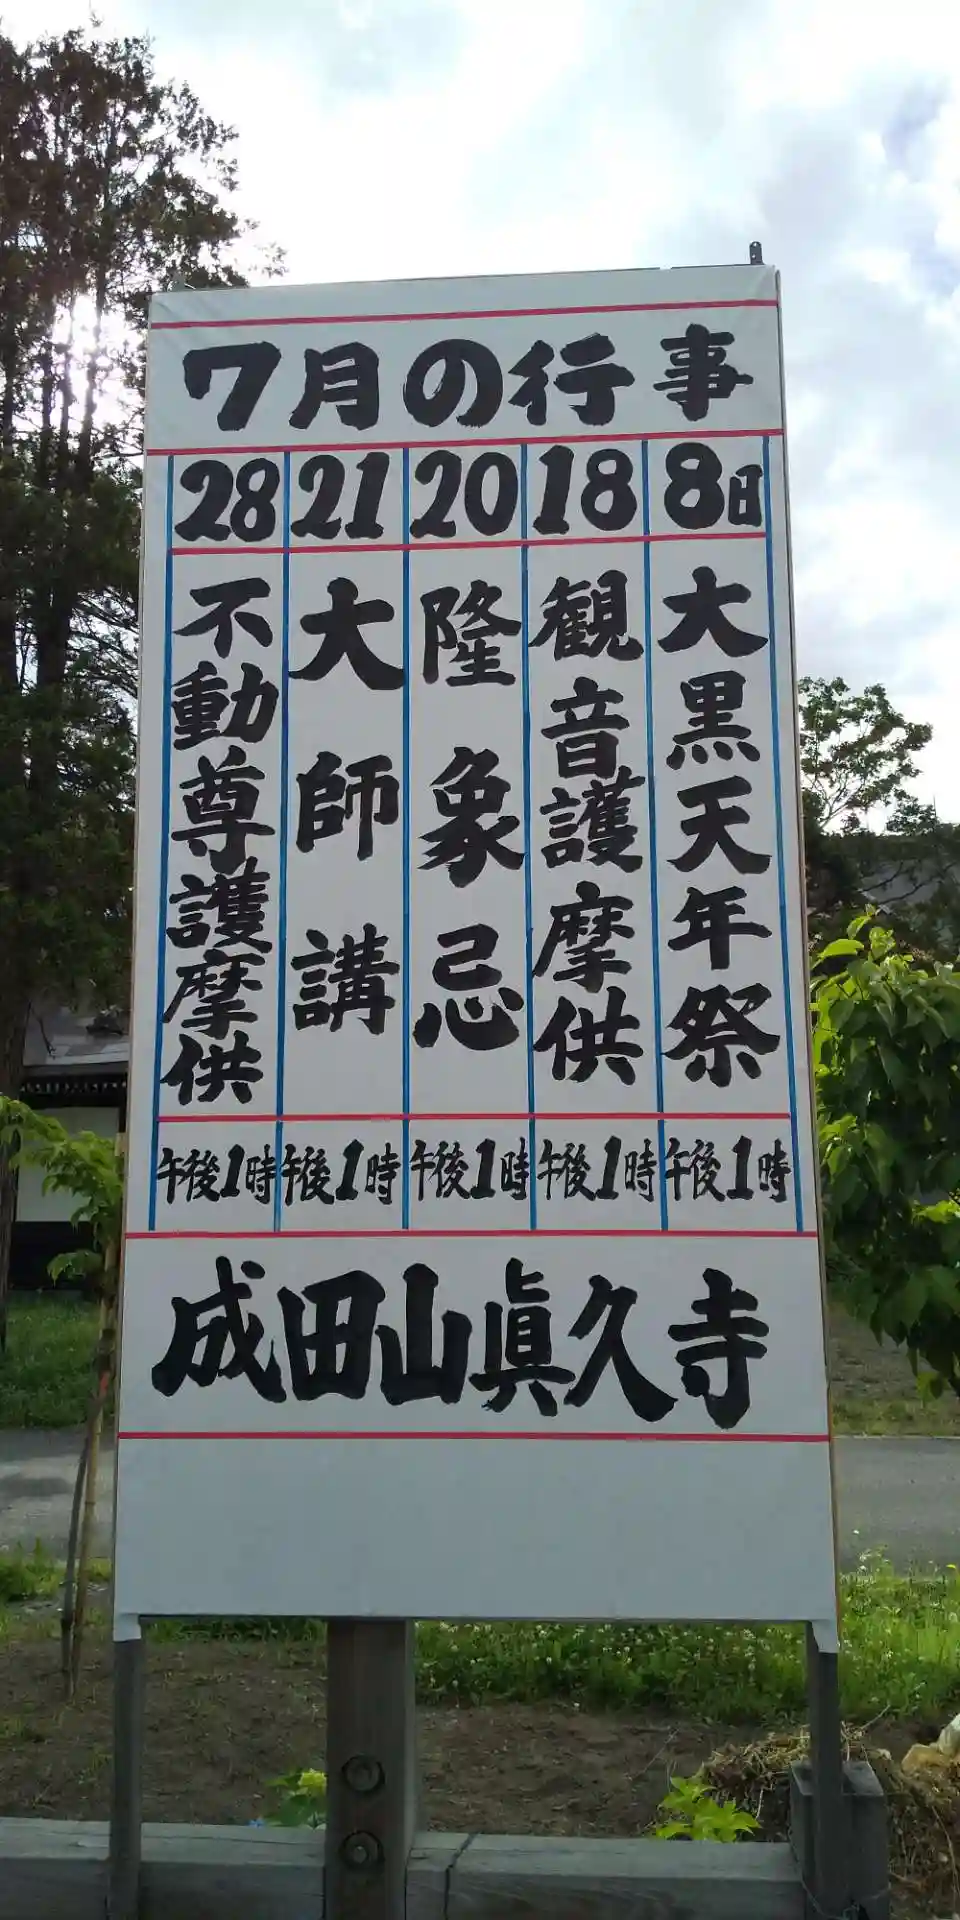 7月の行事
8日
大黒天年祭
午後1時
18
観音護摩供
午後1時
20
隆象忌
午後1時
21
大師講
午後1時
28
不動尊護摩供
午後1時
成田山眞久寺